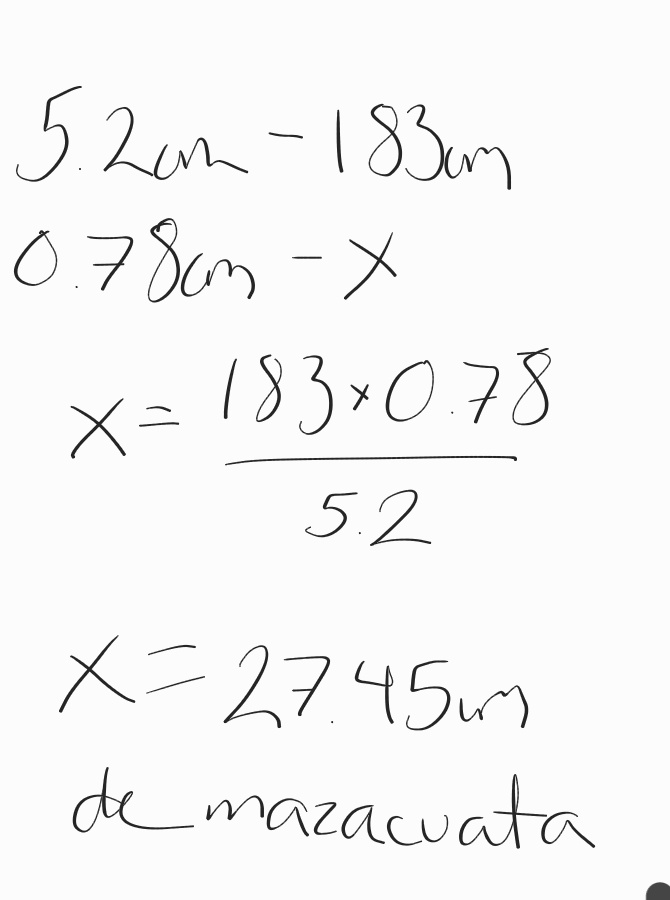 5.2cm - 183cm
0.78cm - x
x = 183 x 0.78
5.2
x = 27.45cm
de mazacuata